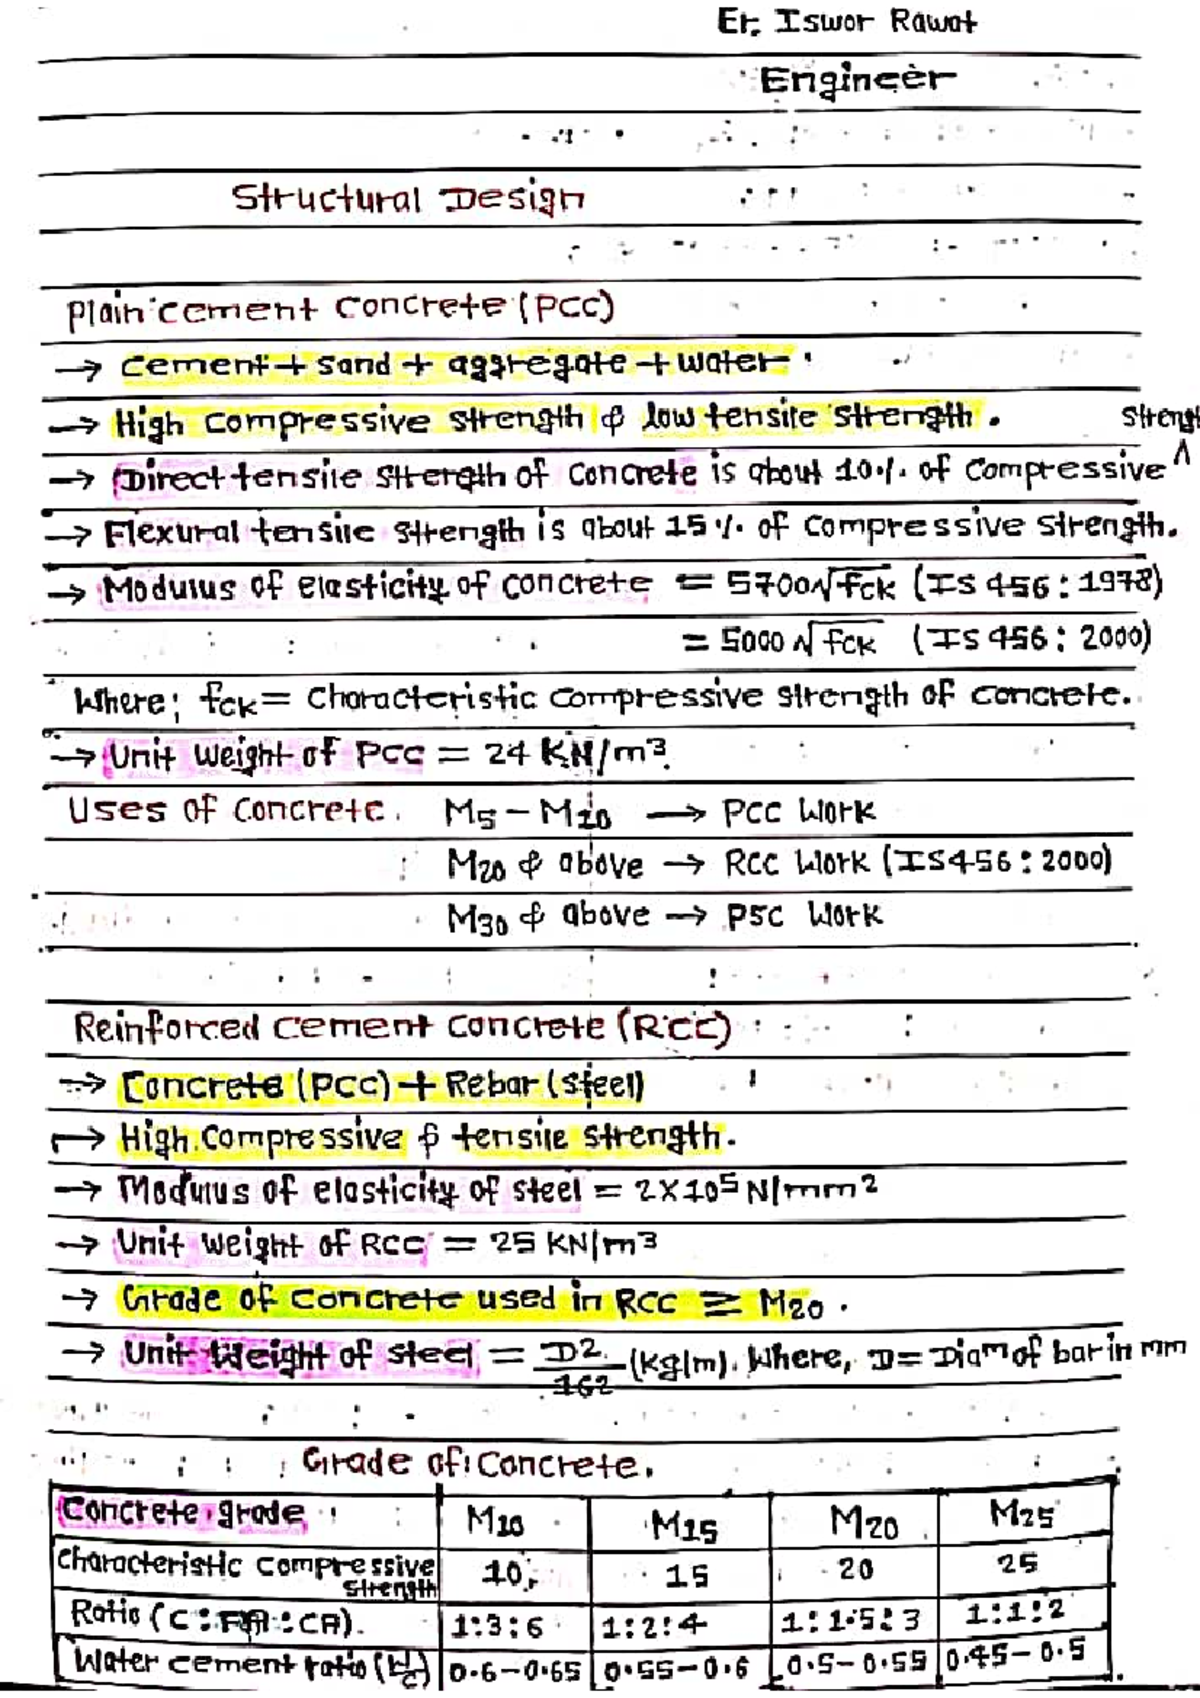 Er. Iswor Rawat
Engineer
Structural Design
Plain cement concrete (PCC)
→ cement + sand + aggregate + water.
→ High compressive strength & low tensile strength.
→ Direct tensile strength of concrete is about 10% of compressive ^ strength
→ Flexural tensile strength is about 15% of compressive strength.
→ Modulus of elasticity of concrete = 5700√fck (IS 456 : 1978)
= 5000√fck (IS 456 : 2000)
Where; fck = characteristic compressive strength of concrete.
→ Unit weight of PCC = 24 KN/m³.
Uses of concrete. M5 – M20 → PCC Work
M20 & above → RCC Work (IS456 : 2000)
M30 & above → PSC Work
Reinforced cement concrete (RCC)
→ Concrete (PCC) + Rebar (steel)
→ High compressive & tensile strength.
→ Modulus of elasticity of steel = 2X10⁵ N/mm²
→ Unit weight of RCC = 25 KN/m³
→ Grade of concrete used in RCC ≥ M20.
→ Unit Weight of steel = D²/162 (Kg/m). Where, D = Diaᵐ of bar in mm
Grade of concrete.
Concrete grade M10 M15 M20 M25
characteristic compressive strength 10 15 20 25
Ratio (C : FA : CA). 1:3:6 1:2:4 1:1.5:3 1:1:2
Water cement ratio (w/c) 0.6–0.65 0.55–0.6 0.5–0.55 0.45–0.5